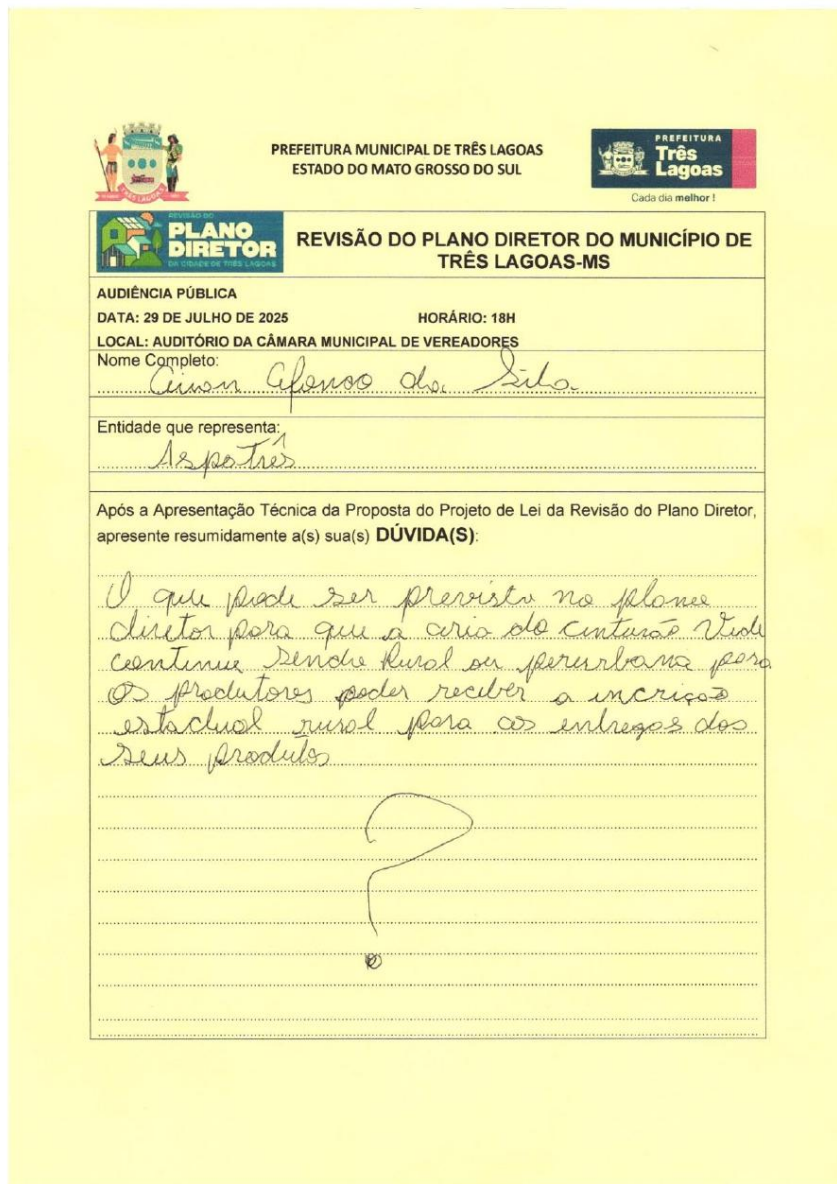 PREFEITURA MUNICIPAL DE TRÊS LAGOAS
ESTADO DO MATO GROSSO DO SUL
PREFEITURA
Três
Lagoas
Cada dia melhor !
TRÊS LAGOAS
REVISÃO DO
PLANO
DIRETOR
DA CIDADE DE TRÊS LAGOAS
REVISÃO DO PLANO DIRETOR DO MUNICÍPIO DE
TRÊS LAGOAS-MS
AUDIÊNCIA PÚBLICA
DATA: 29 DE JULHO DE 2025 HORÁRIO: 18H
LOCAL: AUDITÓRIO DA CÂMARA MUNICIPAL DE VEREADORES
Nome Completo:
Afonso da Silva
Entidade que representa:
Aspotrês
Após a Apresentação Técnica da Proposta do Projeto de Lei da Revisão do Plano Diretor,
apresente resumidamente a(s) sua(s) DÚVIDA(S):
O que pode ser previsto no plano
diretor para que a aria do cinturão Verde
continue sendo Rural ou perurbana para
os produtores poder receber a incrição
estadual rural para as entregas dos
seus produtos
?